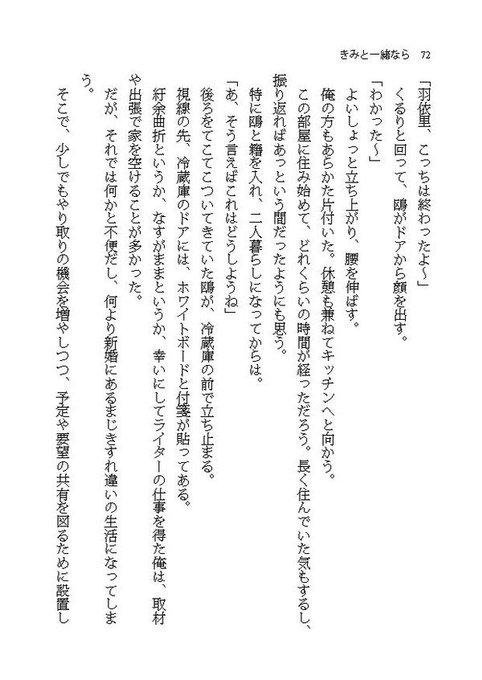 きみと一緒なら 72
「羽依里、こっちは終わったよ〜」
くるりと回って、鴎がドアから顔を出す。
「わかった〜」
よいしょっと立ち上がり、腰を伸ばす。
俺の方もあらかた片付いた。休憩も兼ねてキッチンへと向かう。
この部屋に住み始めて、どれくらいの時間が経っただろう。長く住んでいた気もするし、
振り返ればあっという間だったようにも思う。
特に鴎と籍を入れ、二人暮らしになってからは。
「あ、そう言えばこれはどうしようね」
後ろをてこてこついてきていた鴎が、冷蔵庫の前で立ち止まる。
視線の先、冷蔵庫のドアには、ホワイトボードと付箋が貼ってある。
紆余曲折というか、なすがままというか、幸いにしてライターの仕事を得た俺は、取材
や出張で家を空けることが多かった。
だが、それでは何かと不便だし、何より新婚にあるまじきすれ違いの生活になってしま
う。
そこで、少しでもやり取りの機会を増やしつつ、予定や要望の共有を図るために設置し